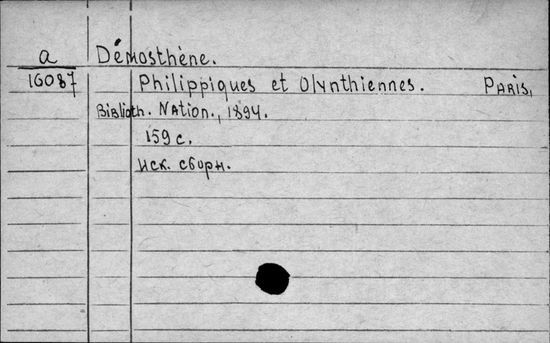 a Démosthène.
16087 Philippiques et Olynthiennes. Paris,
Biblioth. Nation., 1894.
159 с.
Иск. сборн.